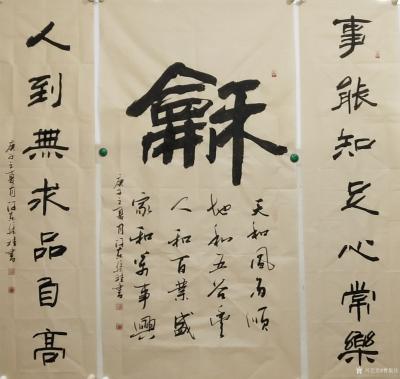 事能知足心常樂
龢
天和風雨順
地和五谷豐
人和百業盛
家和萬事興
庚子之夏月
人到無求品自高
庚子之夏月